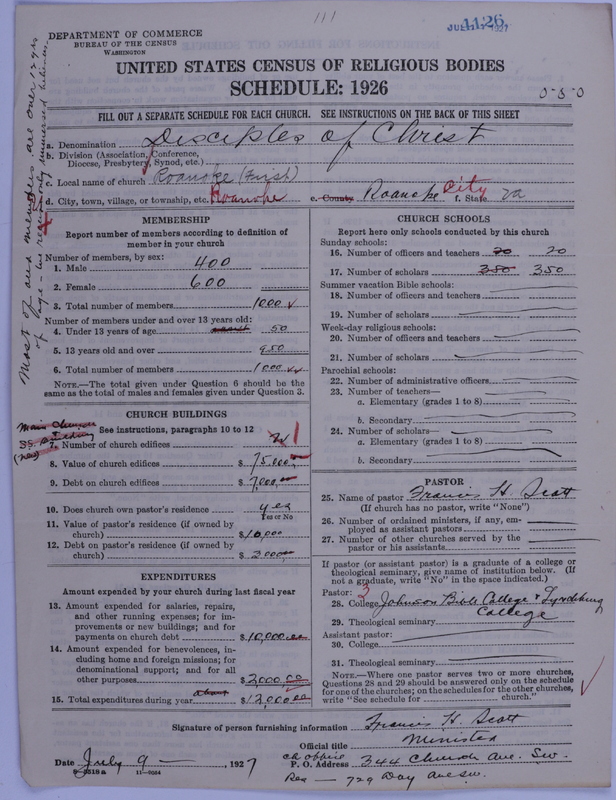 111
1126
JUL 1927
DEPARTMENT OF COMMERCE
BUREAU OF THE CENSUS
WASHINGTON
UNITED STATES CENSUS OF RELIGIOUS BODIES
SCHEDULE: 1926
0-8-0
FILL OUT A SEPARATE SCHEDULE FOR EACH CHURCH. SEE INSTRUCTIONS ON THE BACK OF THIS SHEET
a. Denomination Disciples of Christ
b. Division (Association, Conference,
Diocese, Presbytery, Synod, etc.)
c. Local name of church Roanoke (First)
d. City, town, village, or township, etc. Roanoke e. County Roanoke City f. State Va
Most of our members are over 12 yrs
of age - we only immersed believers
MEMBERSHIP
Report number of members according to definition of
member in your church
Number of members, by sex:
1. Male 400
2. Female 600
3. Total number of members 1000
Number of members under and over 13 years old:
4. Under 13 years of age about 50
5. 13 years old and over 950
6. Total number of members 1000
NOTE.—The total given under Question 6 should be the
same as the total of males and females given under Question 3.
CHURCH BUILDINGS
See instructions, paragraphs 10 to 12
Main Church
SS. Building
(new)
7. Number of church edifices 2 1
8. Value of church edifices $75,000
9. Debt on church edifices $7,000
10. Does church own pastor's residence yes
Yes or No
11. Value of pastor's residence (if owned by
church) $10,000
12. Debt on pastor's residence (if owned by
church) $2000
EXPENDITURES
Amount expended by your church during last fiscal year
13. Amount expended for salaries, repairs,
and other running expenses; for im-
provements or new buildings; and for
payments on church debt $10,000.00
14. Amount expended for benevolences, in-
cluding home and foreign missions; for
denominational support; and for all
other purposes $2000.00
15. Total expenditures during year about $12,000.00
CHURCH SCHOOLS
Report here only schools conducted by this church
Sunday schools:
16. Number of officers and teachers 20 20
17. Number of scholars 350 350
Summer vacation Bible schools:
18. Number of officers and teachers
19. Number of scholars
Week-day religious schools:
20. Number of officers and teachers
21. Number of scholars
Parochial schools:
22. Number of administrative officers
23. Number of teachers—
a. Elementary (grades 1 to 8)
b. Secondary
24. Number of scholars—
a. Elementary (grades 1 to 8)
b. Secondary
PASTOR
25. Name of pastor Francis H. Scott
(If church has no pastor, write "None")
26. Number of ordained ministers, if any, em-
ployed as assistant pastors
27. Number of other churches served by the
pastor or his assistants
If pastor (or assistant pastor) is a graduate of a college or
theological seminary, give name of institution below. (If
not a graduate, write "No" in the space indicated.)
Pastor: 3
28. College Johnson Bible College & Lynchburg
College
29. Theological seminary
Assistant pastor:
30. College
31. Theological seminary
NOTE.—Where one pastor serves two or more churches,
Questions 28 and 29 should be answered only on the schedule
for one of the churches; on the schedules for the other churches,
write "See schedule for church."
Signature of person furnishing information Francis H. Scott
Official title Minister
Date July 9 — , 1927 ch office P. O. Address 344 Church Ave. Sw.
8318a 11—9034
Res — 729 Day Ave sw.